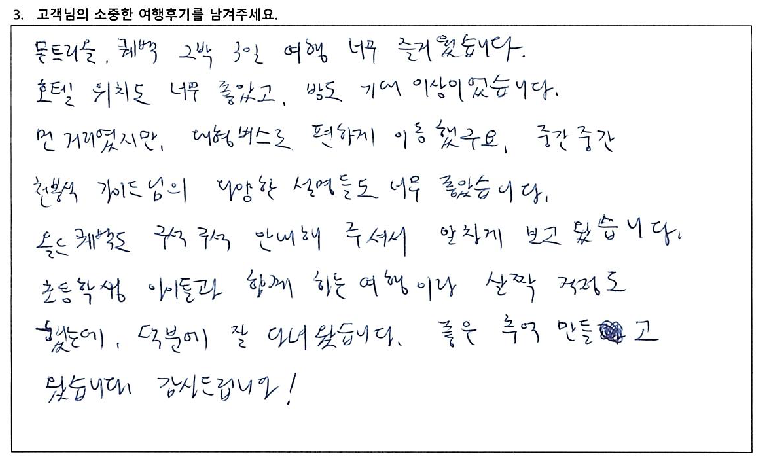 3. 고객님의 소중한 여행후기를 남겨주세요.
몬트리올, 퀘벡 2박 3일 여행 너무 즐거웠습니다.
호텔 위치도 너무 좋았고, 방도 기대 이상이었습니다.
먼 거리였지만, 대형버스로 편하게 이동했구요, 중간중간
천봉식 가이드님의 다양한 설명들도 너무 좋았습니다.
올드퀘벡도 구석구석 안내해 주셔서 알차게 보고 왔습니다.
초등학생 아이들과 함께 하는 여행이라 살짝 걱정도
했는데, 덕분에 잘 다녀왔습니다. 좋은 추억 만들고
왔습니다. 감사드립니다!